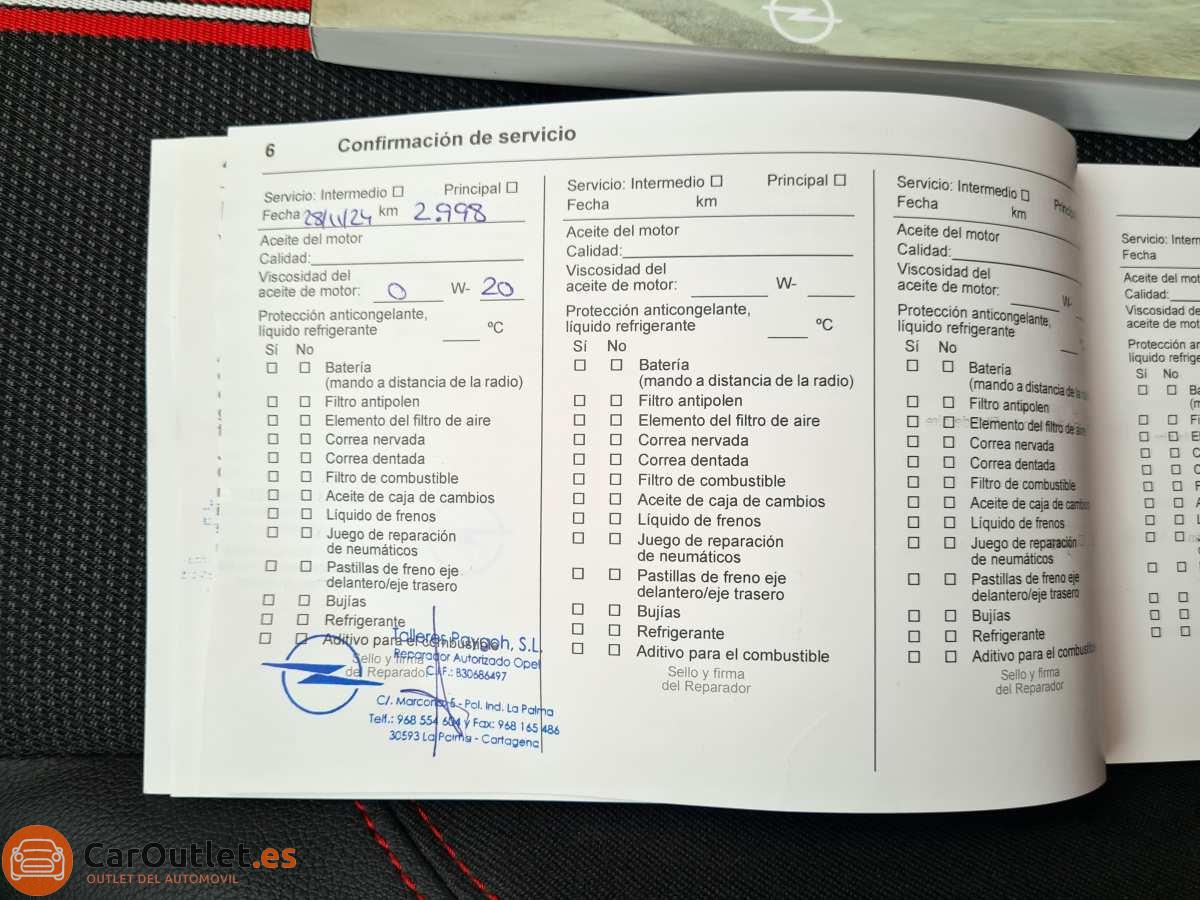 6 Confirmación de servicio
Servicio: Intermedio ☐ Principal ☐
Fecha 28/11/24 km 2.998
Aceite del motor
Calidad:
Viscosidad del
aceite de motor: 0 W- 20
Protección anticongelante,
líquido refrigerante ºC
Sí No
☐ ☐ Batería
(mando a distancia de la radio)
☐ ☐ Filtro antipolen
☐ ☐ Elemento del filtro de aire
☐ ☐ Correa nervada
☐ ☐ Correa dentada
☐ ☐ Filtro de combustible
☐ ☐ Aceite de caja de cambios
☐ ☐ Líquido de frenos
☐ ☐ Juego de reparación
de neumáticos
☐ ☐ Pastillas de freno eje
delantero/eje trasero
☐ ☐ Bujías
☐ ☐ Refrigerante
☐ ☐ Aditivo para el combustible
Sello y firma
del Reparador
Talleres Paygoh, S.L.
Reparador Autorizado Opel
C.I.F.: B30686497
C/. Marconi, 5 - Pol. Ind. La Palma
Telf.: 968 554 604 y Fax: 968 165 486
30593 La Palma - Cartagena
Servicio: Intermedio ☐ Principal ☐
Fecha km
Aceite del motor
Calidad:
Viscosidad del
aceite de motor: W-
Protección anticongelante,
líquido refrigerante ºC
Sí No
☐ ☐ Batería
(mando a distancia de la radio)
☐ ☐ Filtro antipolen
☐ ☐ Elemento del filtro de aire
☐ ☐ Correa nervada
☐ ☐ Correa dentada
☐ ☐ Filtro de combustible
☐ ☐ Aceite de caja de cambios
☐ ☐ Líquido de frenos
☐ ☐ Juego de reparación
de neumáticos
☐ ☐ Pastillas de freno eje
delantero/eje trasero
☐ ☐ Bujías
☐ ☐ Refrigerante
☐ ☐ Aditivo para el combustible
Sello y firma
del Reparador
Servicio: Intermedio ☐
Fecha km
Aceite del motor
Calidad:
Viscosidad del
aceite de motor: W-
Protección anticongelante,
líquido refrigerante
Sí No
☐ ☐ Batería
(mando a distancia de la
☐ ☐ Filtro antipolen
☐ ☐ Elemento del filtro de aire
☐ ☐ Correa nervada
☐ ☐ Correa dentada
☐ ☐ Filtro de combustible
☐ ☐ Aceite de caja de
☐ ☐ Líquido de frenos
☐ ☐ Juego de reparación
de neumáticos
☐ ☐ Pastillas de freno eje
delantero/eje trasero
☐ ☐ Bujías
☐ ☐ Refrigerante
☐ ☐ Aditivo para el combustible
Sello y firma
del Reparador
Servicio:
Fecha
Aceite del
Calidad:
Viscosidad
aceite de
Protección
líquido
Sí No
CarOutlet.es
OUTLET DEL AUTOMOVIL